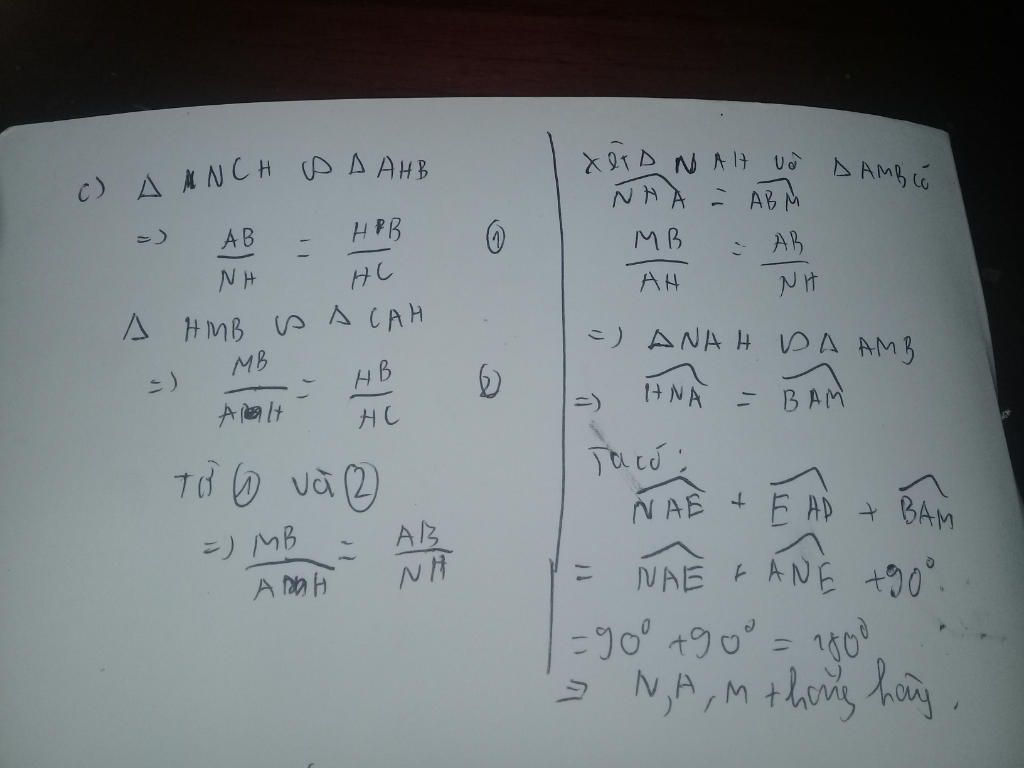 c) Δ NCH ∽ Δ AHB
=> AB/NH = HB/HC ①
Δ HMB ∽ Δ CAH
=> MB/AH = HB/HC ②
Từ ① và ②
=> MB/AH = AB/NH
Xét Δ NAH và Δ AMB có
\widehat{NHA} = \widehat{ABM}
MB/AH = AB/NH
=> ΔNAH ∽ Δ AMB
=> \widehat{HNA} = \widehat{BAM}
Ta có:
\widehat{NAE} + \widehat{EAD} + \widehat{BAM}
= \widehat{NAE} + \widehat{ANE} + 90°.
= 90° + 90° = 180°
=> N, A, M thẳng hàng.